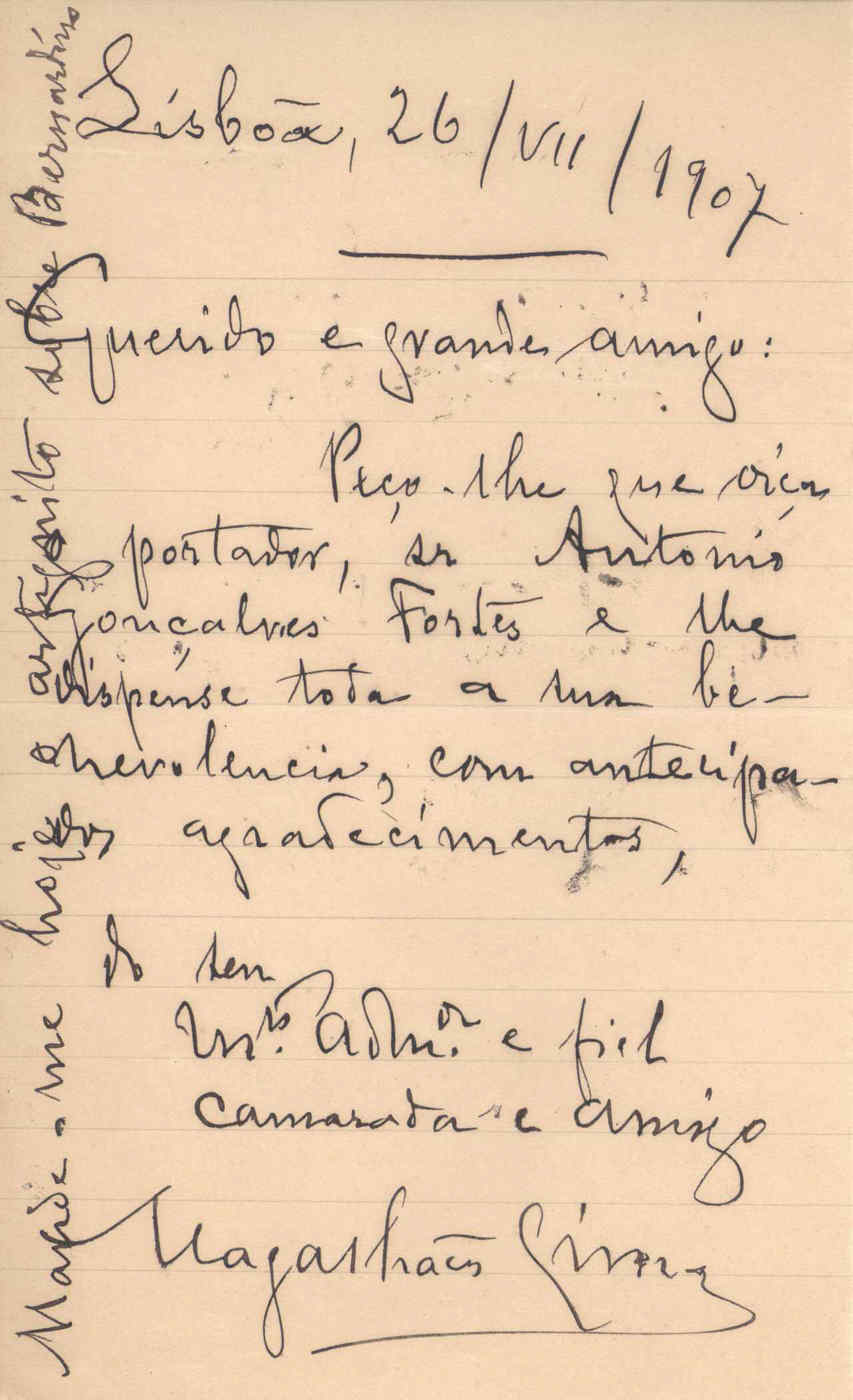 Lisbôa, 26/VII/1907
Querido e grande amigo:
Peço-lhe que oiça
o portador, sr Antonio
Gonçalves Fortes e lhe
dispense toda a sua be-
nevolencia, com antecipa-
dos agradecimentos,
do seu
mto. admor. e fiel
camarada e amigo
Magalhães Lima
Mande-me hoje o artiguito sobre Bernardino